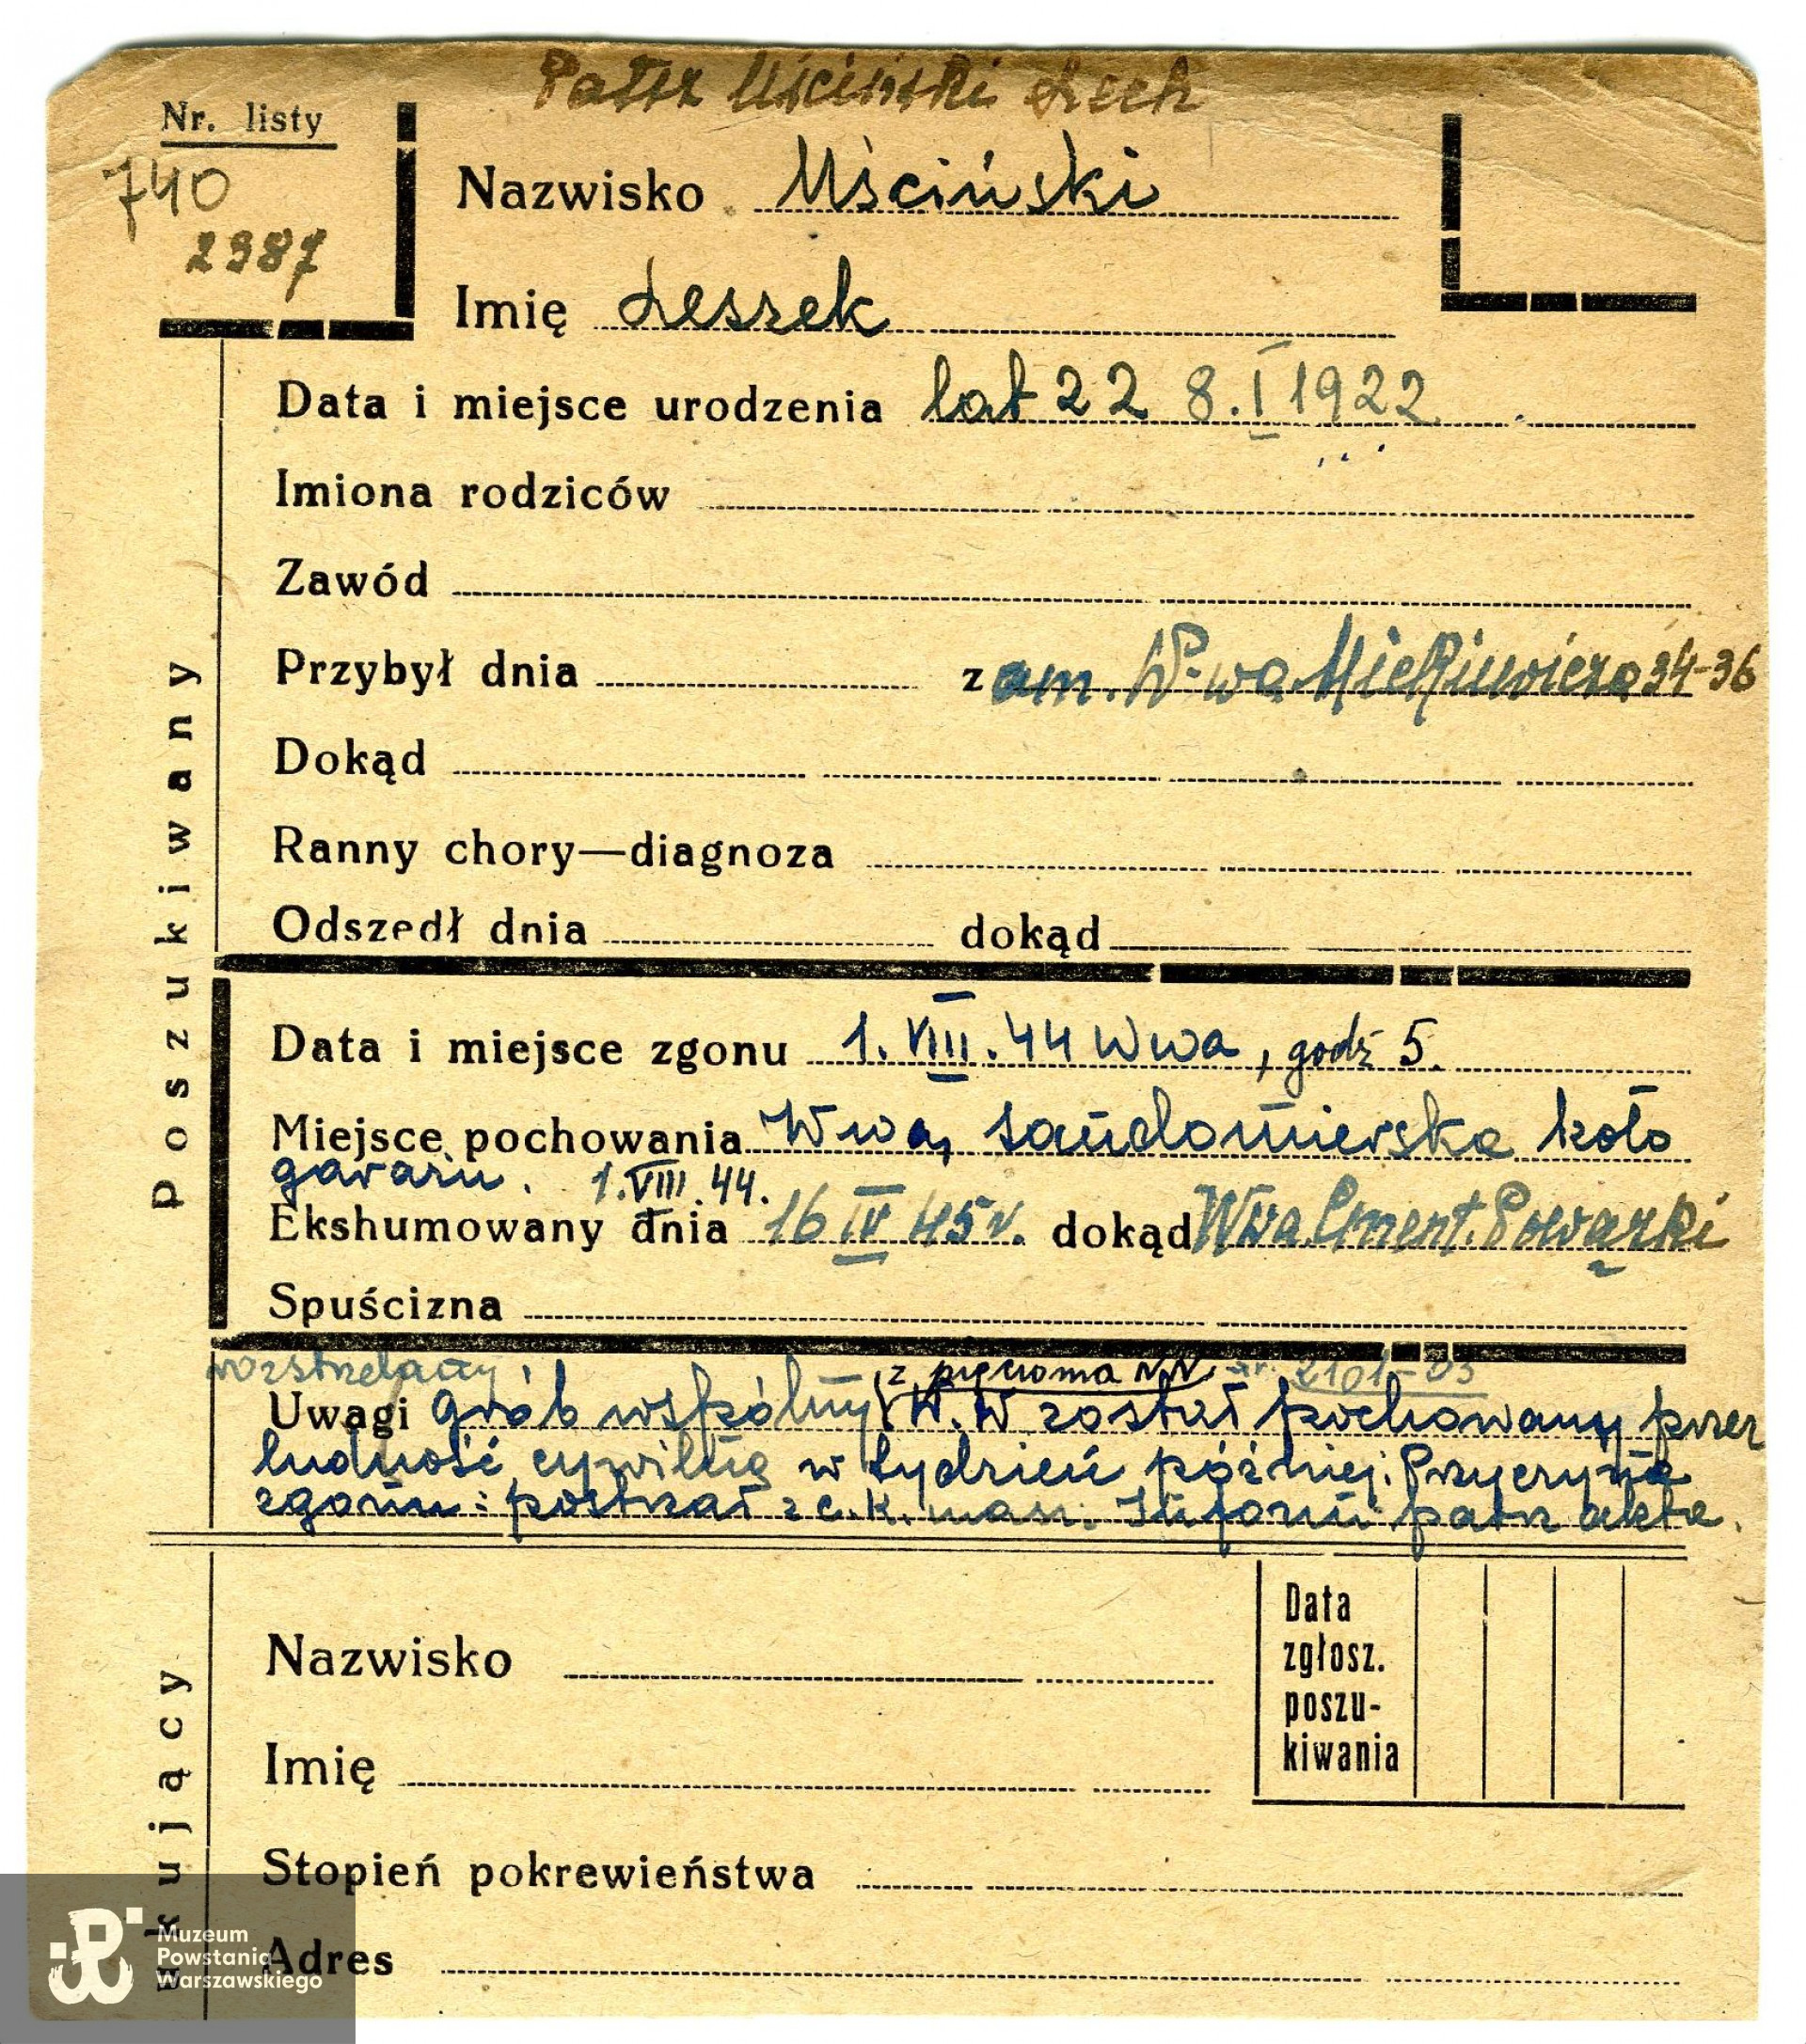 Patrz Mściński Lech
Nr. listy
740
2387
Nazwisko Mściński
Imię Leszek
Data i miejsce urodzenia lat 22 8.I 1922
Imiona rodziców
Zawód
Przybył dnia zam. W-wa Mickiewicza 34-36
Dokąd
Ranny chory—diagnoza
Odszedł dnia dokąd
Poszukiwany
Data i miejsce zgonu 1.VIII.44 Wwa, godz 5.
Miejsce pochowania Wwa, Sandomierska koło
garażu. 1.VIII.44.
Ekshumowany dnia 16 IV 45 r. dokąd Wwa Cment. Powązki
Spuścizna
rozstrzelany z pięcioma NN. nr. 2101-03
Uwagi Grób wspólny W.W został pochowany przez
ludność cywilną w tydzień później. Przyczyna
zgonu: postrzał z c.k. masz. Inform patrz akta.
Nazwisko
Imię
Stopień pokrewieństwa
Adres
Data
zgłosz.
poszu-
kiwania
ukujący
Muzeum
Powstania
Warszawskiego